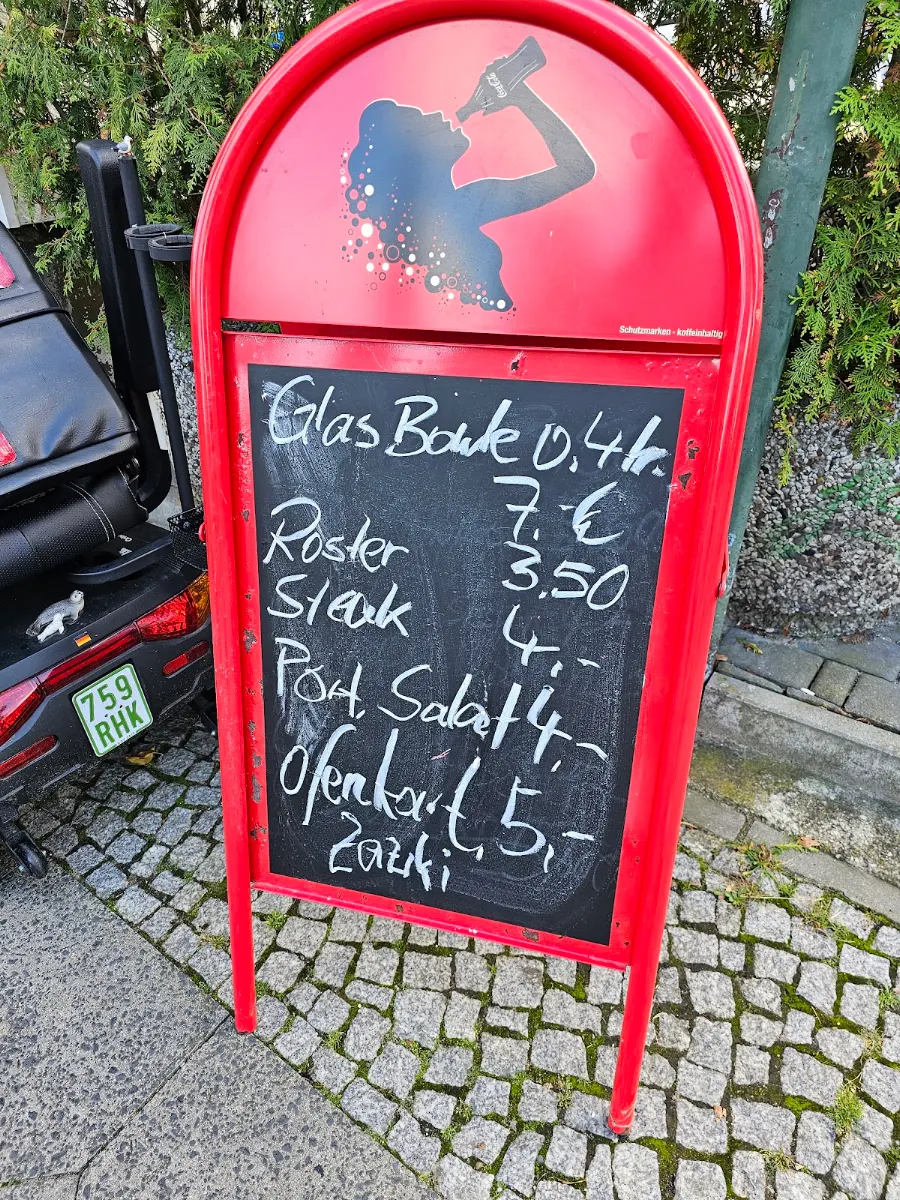 Coca-Cola
Schutzmarken · koffeinhaltig
Glas Bowle 0,4 ltr.
7,-€
Roster 3,50
Steak 4,-
Port. Salat 4,-
Ofenkart. 5,-
Zaziki
759
RHK